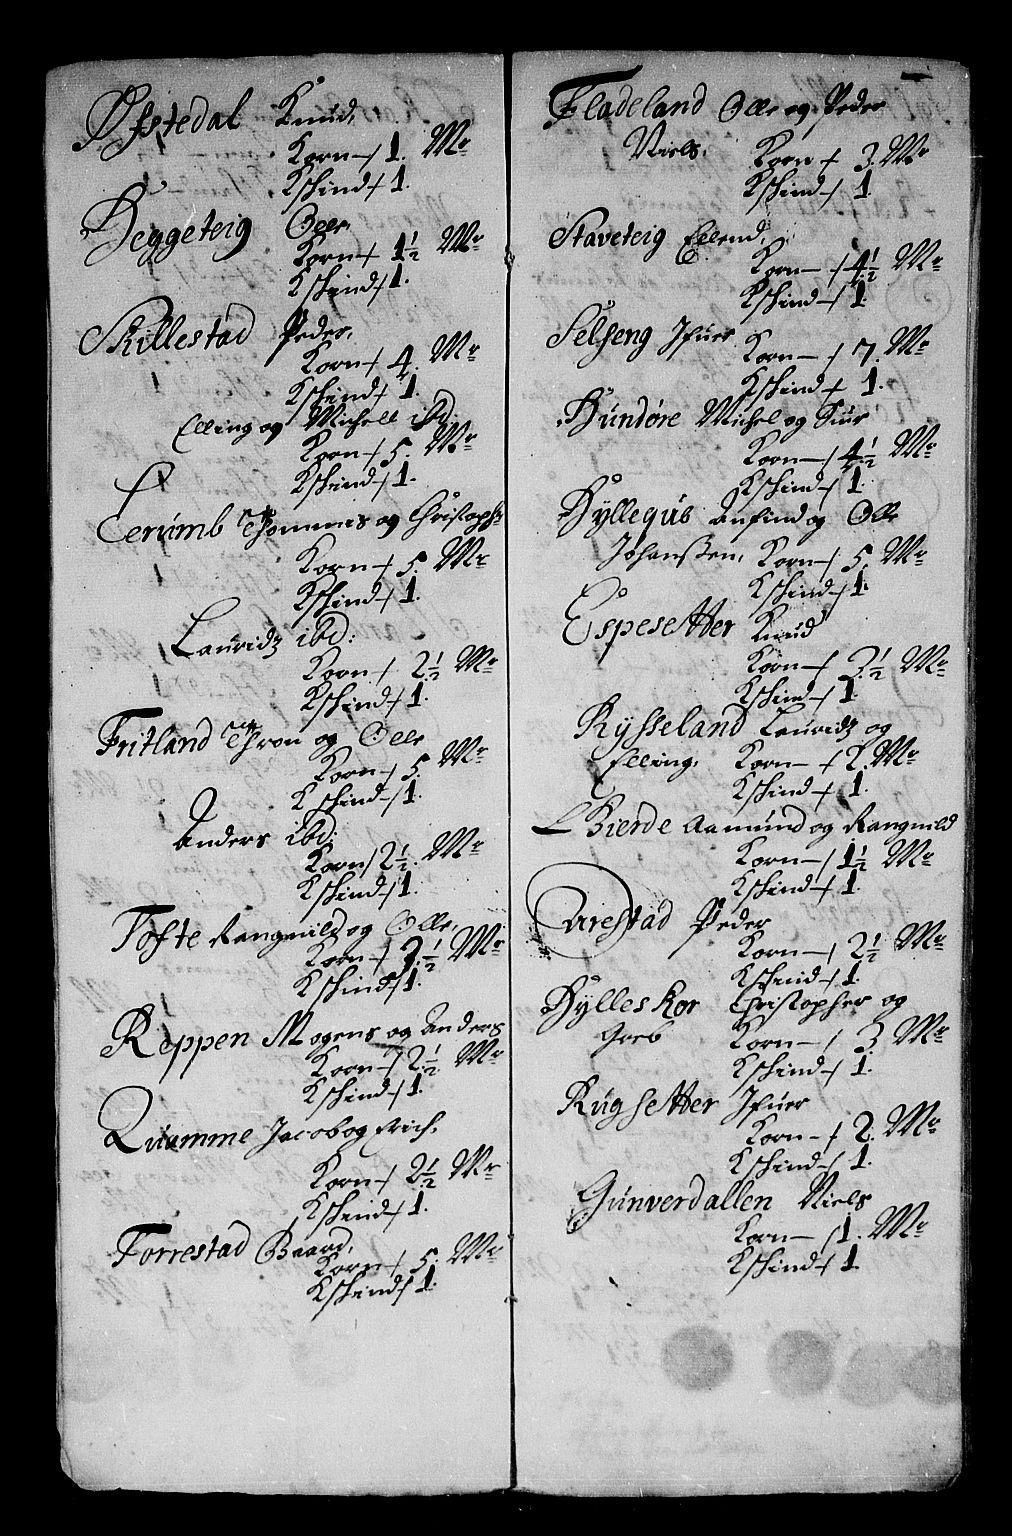 Øfstedal Knud,
Korn — 1. Mr
Kschind — 1.
Heggeteig Olle,
Korn — 1½ Mr
Kschind — 1.
Skillestad Peder,
Korn — 4. Mr
Kschind — 1.
Elling og Michell ibd:
Korn — 5. Mr
Kschind — 1.
Thommes og Christopher
Korn — 5. Mr
Kschind — 1.
Lauridz ibd:
Korn — 2½ Mr
Kschind — 1.
Fritland Thron og Olle
Korn — 5. Mr
Kschind — 1.
Anders ibd:
Korn — 2½. Mr
Kschind — 1.
Tofte Rangnild og Olle,
Korn — 3½ Mr
Kschind — 1.
Reppen Mogens og Anders
Korn — 2½ Mr
Kschind — 1.
Quamme Jacob og Erich,
Korn — 2½ Mr
Kschind — 1.
Forrestad Baard,
Korn — 5. Mr
Kschind — 1.
Fladeland Olle og Peder
Niels, Korn — 3. Mr
Kschind — 1.
Staveteig Ellend,
Korn — 4½ Mr
Kschind — 1.
Selseng Ifuer
Korn — 7. Mr
Kschind — 1.
Hundøre Michel og Siur
Korn — 4½ Mr
Kschind — 1.
Hyllegus Anfind og Olle
Johanssen, Korn — 5. Mr
Kschind — 1.
Espesetter Knud
Korn — 3½ Mr
Kschind — 1.
Rysseland Lauridz og
Elling, Korn — 2. Mr
Kschind — 1.
Bierde Aamund og Rangnild
Korn — 1½ Mr
Kschind — 1.
Peder
Korn — 2½ Mr
Kschind — 1.
Hylleskor Christopher og
Greb Korn — 3. Mr
Kschind — 1.
Rugsetter Ifuer
Korn — 2. Mr
Kschind — 1.
Gunverdallen Niels
Korn — 1. Mr
Kschind — 1.